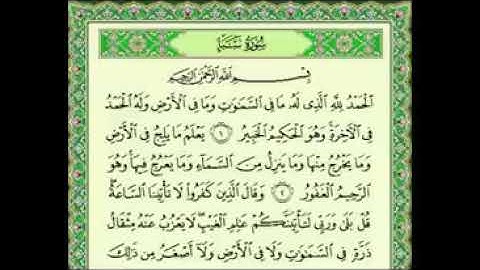 سُورَةُ سَبَإٍ
بِسْمِ اللَّهِ الرَّحْمَٰنِ الرَّحِيمِ
الْحَمْدُ لِلَّهِ الَّذِي لَهُ مَا فِي السَّمَوَاتِ وَمَا فِي الْأَرْضِ وَلَهُ الْحَمْدُ
فِي الْآخِرَةِ وَهُوَ الْحَكِيمُ الْخَبِيرُ ١ يَعْلَمُ مَا يَلِجُ فِي الْأَرْضِ
وَمَا يَخْرُجُ مِنْهَا وَمَا يَنْزِلُ مِنَ السَّمَاءِ وَمَا يَعْرُجُ فِيهَا وَهُوَ
الرَّحِيمُ الْغَفُورُ ٢ وَقَالَ الَّذِينَ كَفَرُوا لَا تَأْتِينَا السَّاعَةُ
قُلْ بَلَى وَرَبِّي لَتَأْتِيَنَّكُمْ عَالِمِ الْغَيْبِ لَا يَعْزُبُ عَنْهُ مِثْقَالُ
ذَرَّةٍ فِي السَّمَوَاتِ وَلَا فِي الْأَرْضِ وَلَا أَصْغَرُ مِنْ ذَلِكَ